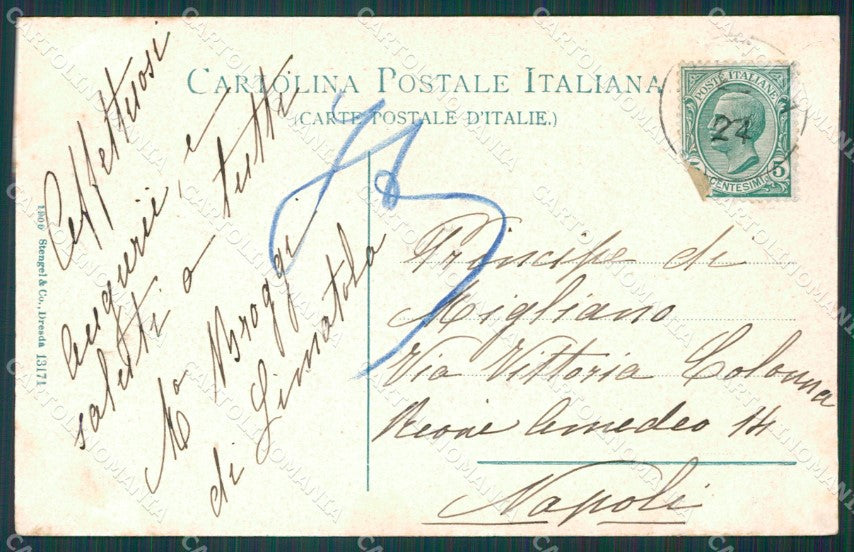 CARTOLINA POSTALE ITALIANA
(CARTE POSTALE D'ITALIE.)
POSTE ITALIANE
22
CENTESIMI 5
Affettuosi
augurii e
saluti a tutti
Mo Broggi
di Limatola
Principe di
Migliano
Via Vittoria Colonna
Rione Amedeo 14
Napoli
1906 Stengel & Co., Dresda 13171
CARTOLINOMANIA